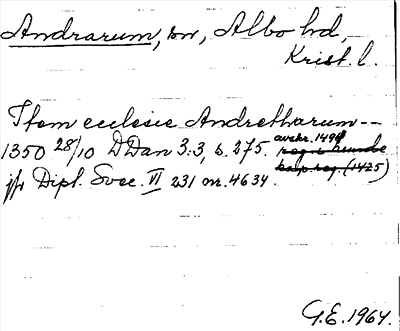 Andrarum, sn, Albo hd,
Krist. l.
Item ecclesie Andretharum--
1350 28/10 DDan 3:3, s. 275. avskr. 1494
jfr Dipl. Svec. VI 231 nr. 4634.
(1425)
G.E. 1964.